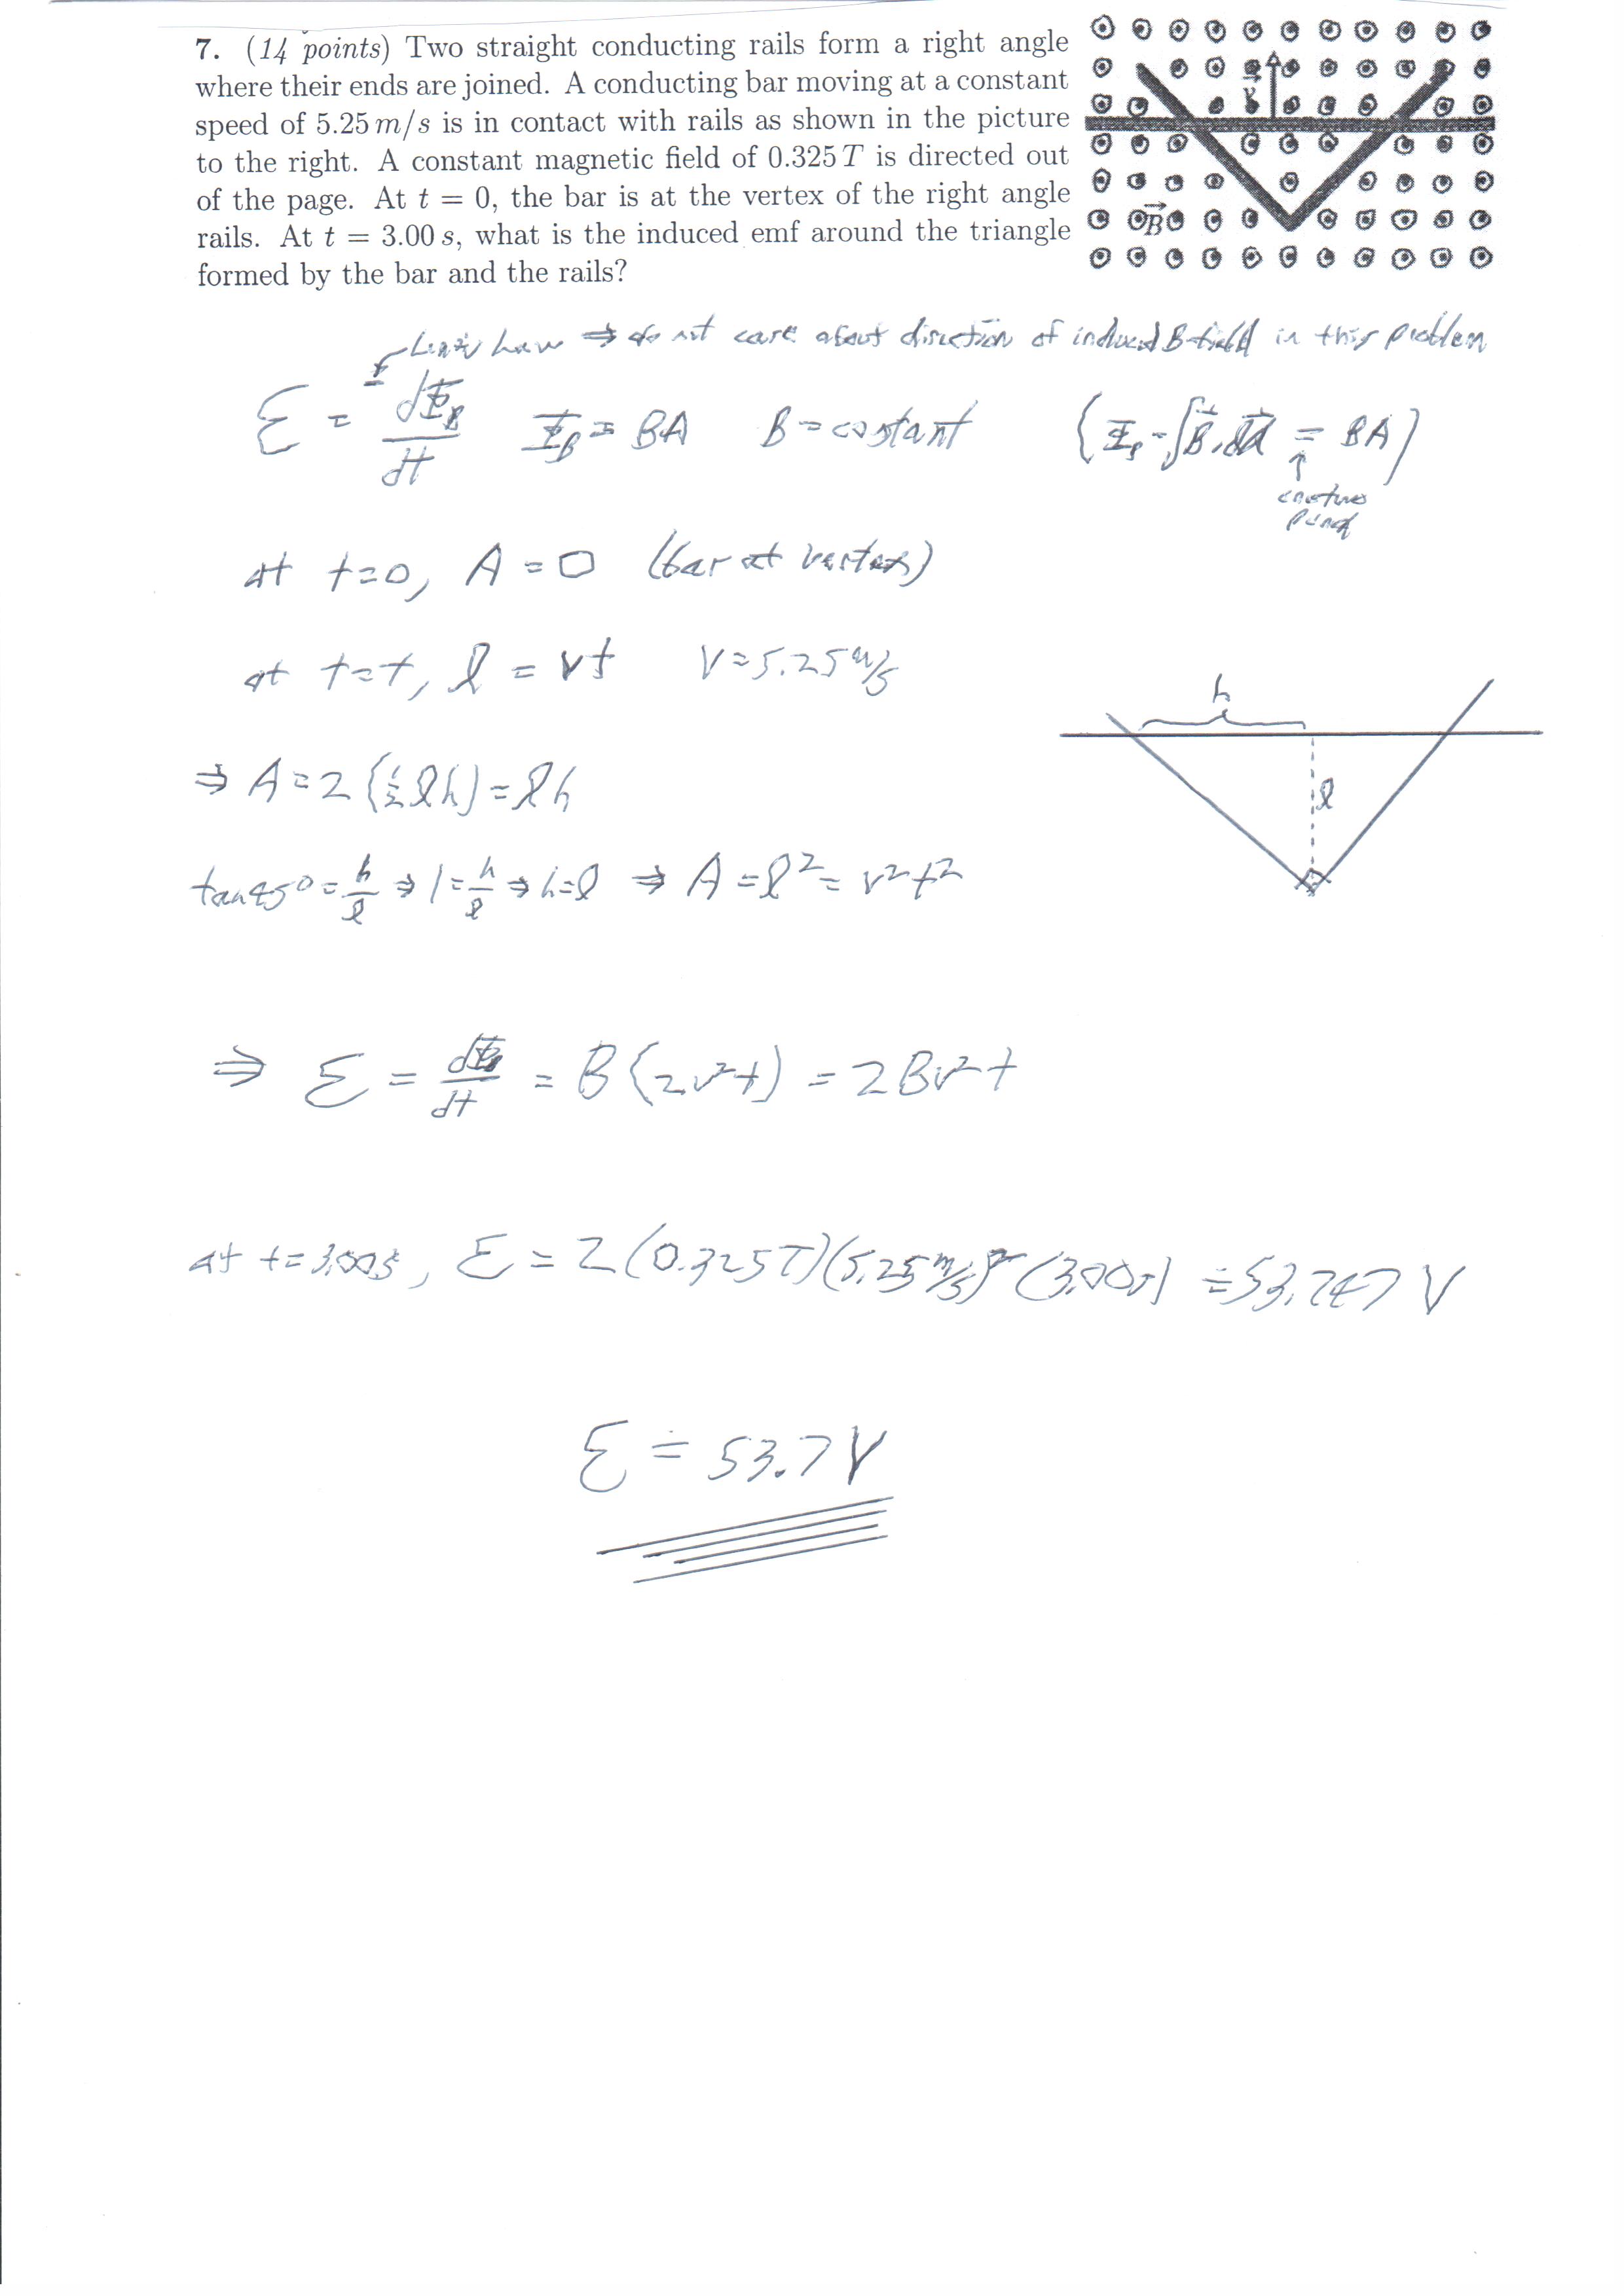 7. (14 points) Two straight conducting rails form a right angle
where their ends are joined. A conducting bar moving at a constant
speed of 5.25 m/s is in contact with rails as shown in the picture
to the right. A constant magnetic field of 0.325 T is directed out
of the page. At t = 0, the bar is at the vertex of the right angle
rails. At t = 3.00 s, what is the induced emf around the triangle
formed by the bar and the rails?
v⃗
B⃗
Lenz's Law ⇒ do not care about direction of induced B-field in this problem
ℰ = ∓ dΦ_B/dt Φ_B = BA B = constant (Φ_B = ∫B⃗·dA⃗ = BA)
↑
at t=0, A = 0 (bar at vertex)
at t=t, l = vt V = 5.25 m/s
h
l
⇒ A = 2(½lh) = lh
tan45° = h/l ⇒ 1 = h/l ⇒ h=l ⇒ A = l² = v²t²
⇒ ℰ = dΦ_B/dt = B(2v²t) = 2Bv²t
at t = 3.00s, ℰ = 2(0.325T)(5.25 m/s)²(3.00s) ≐ 53.747 V
ℰ ≐ 53.7 V